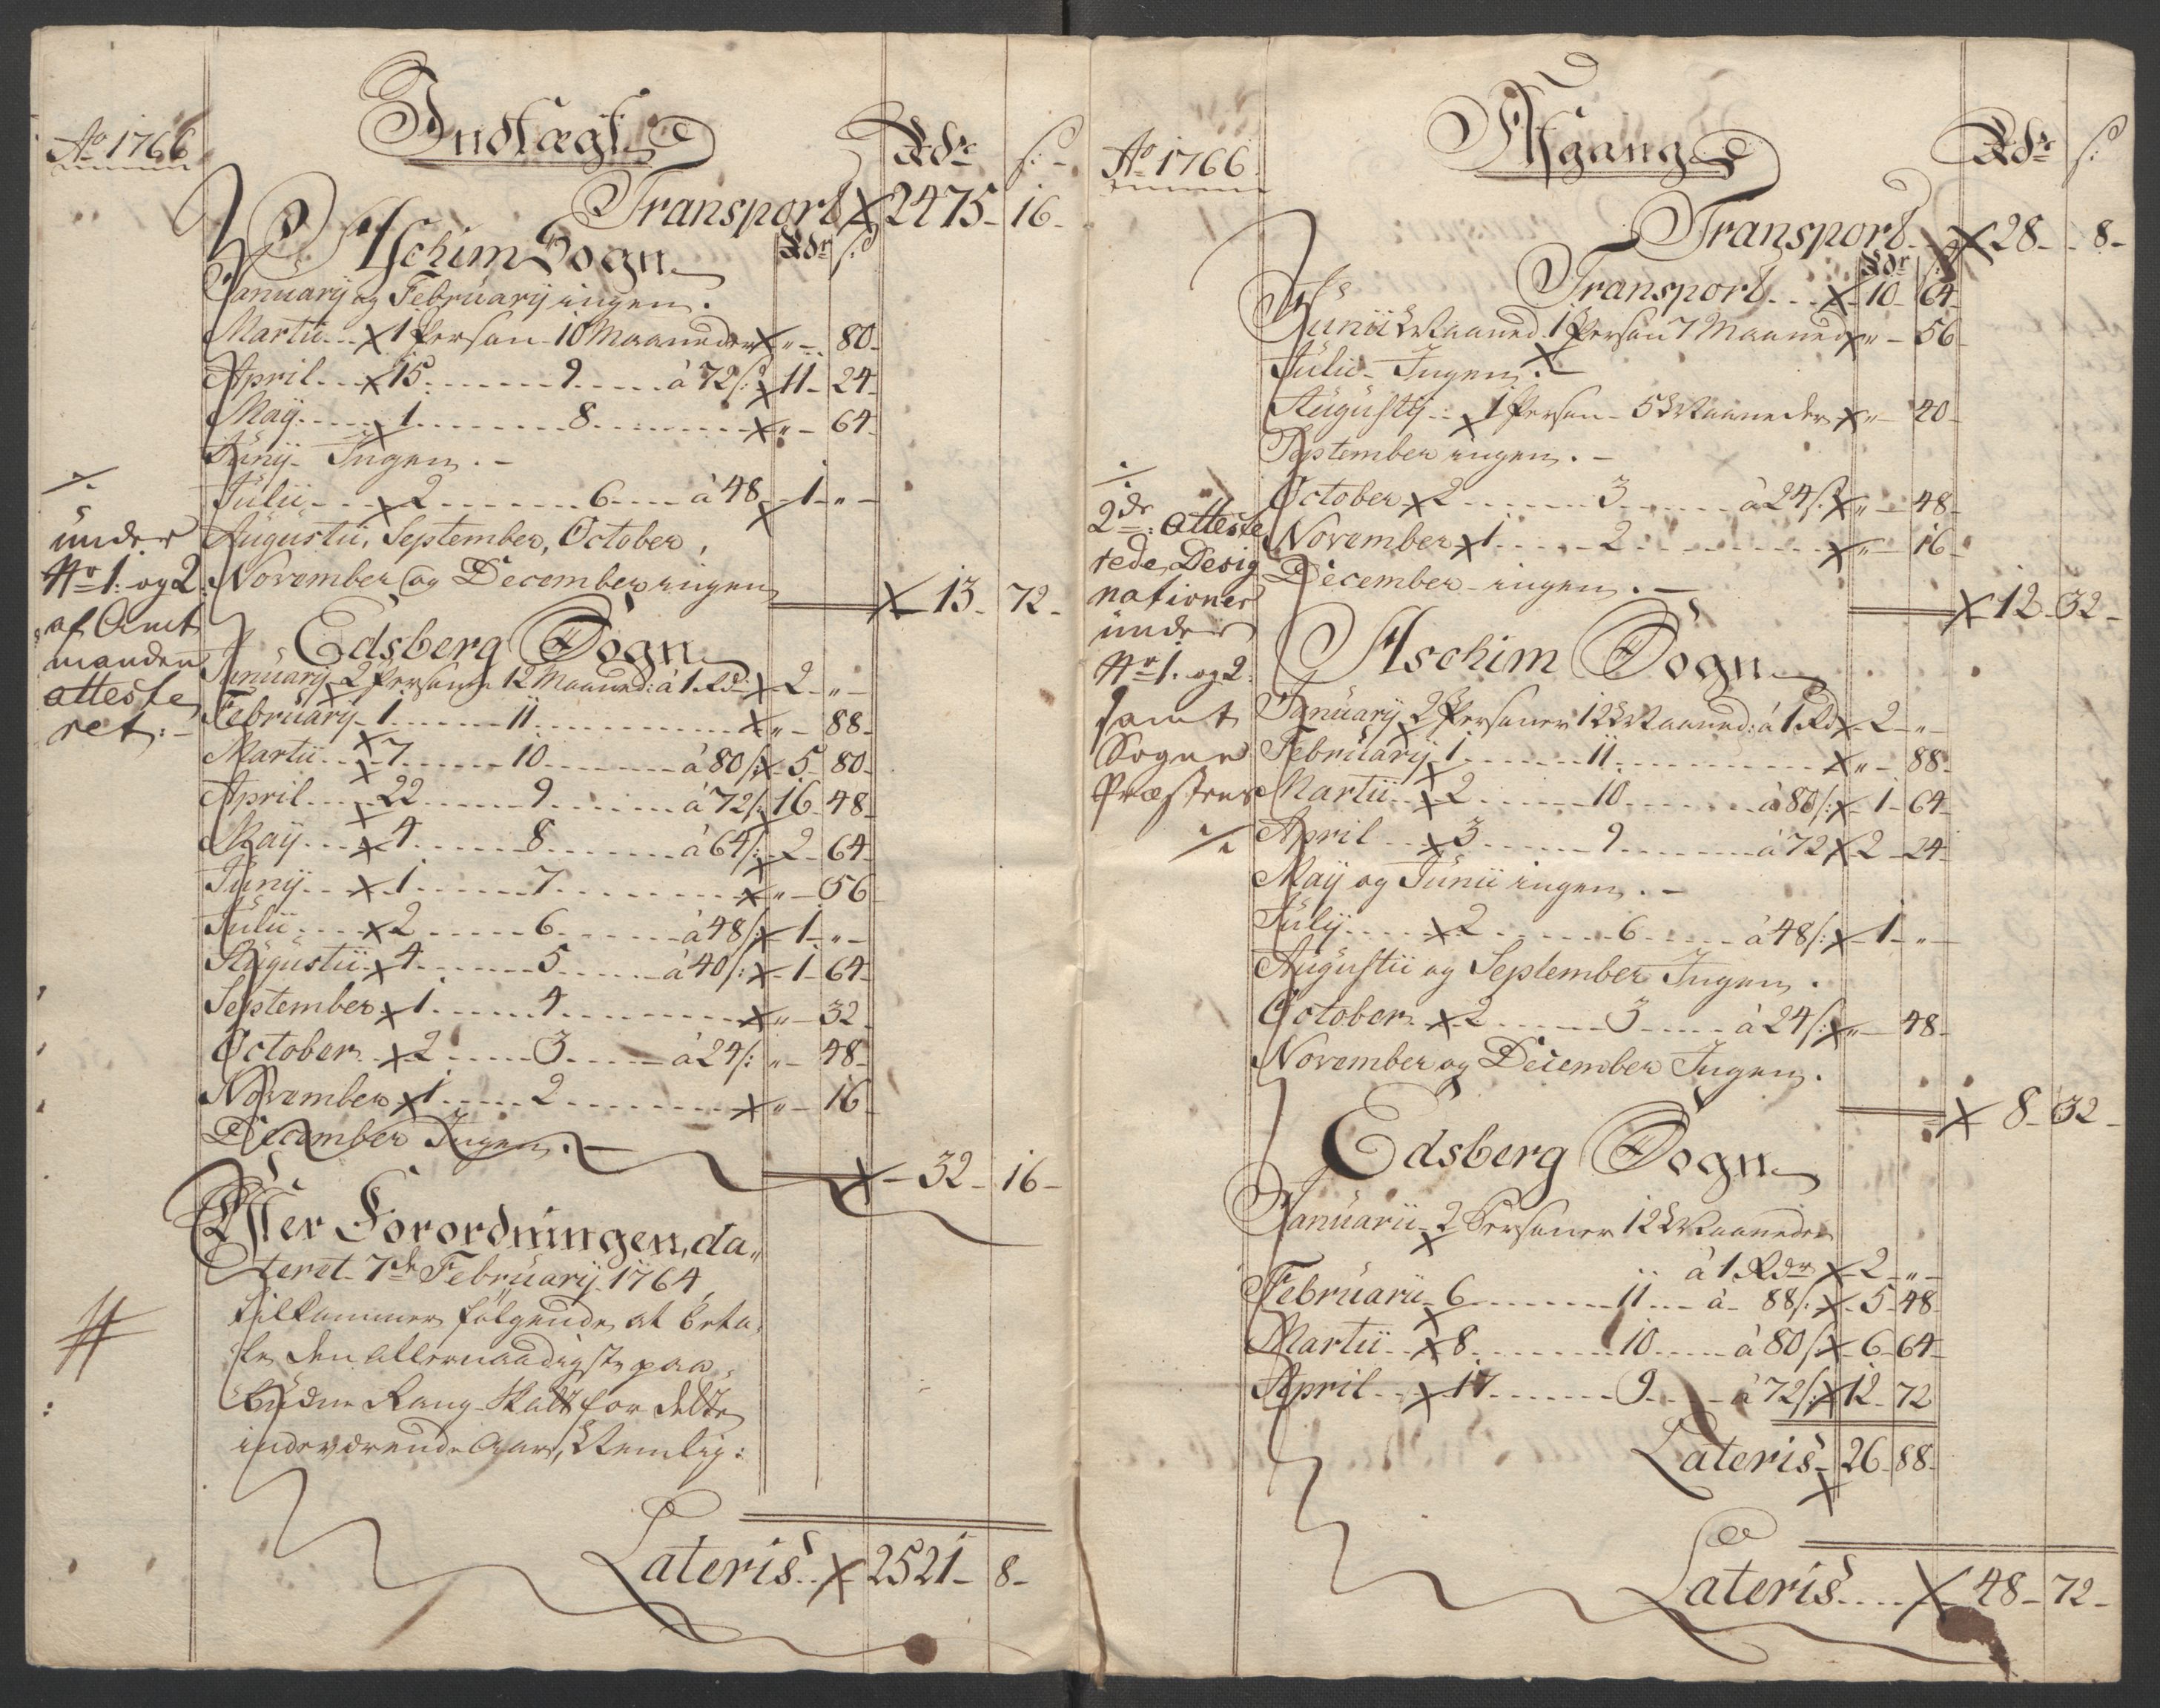 Ao 1766
Indtægt
Rdr s:
Transport x 2475 - 16 -
Aschim Sogn
Rdr s:
Januarij og Februarij ingen.
Martii... x 1 Person - 10 Maaneder x " - 80 -
April... x 15 ....... 9 ..... à 72 s: x 11 - 24 -
Maij..... x 1 ......... 8 ......... x " - 64 -
Junij - Ingen. -
Julii... x 2 ........ 6 .... à 48 x - 1 - " -
Augustii, September, October,
November og December ingen
x - 13 - 72 -
Edsberg Sogn
Januarij 2 Personer 12 Maaned: à 1 Rd: x - 2 - " -
Februarij - 1 ....... 11 ............ x " - 88 -
Martii... x 7 ....... 10 ........ à 80 s: x - 5 - 80 -
April..... x 22 ....... 9 ....... à 72 s: x 16 - 48 -
Maij.... x 4 ....... 8 ........ à 64 s: x - 2 - 64 -
Junij... x 1 ....... 7 .......... x " - 56
Julii.... x 2 ...... 6 ....... à 48 s: x - 1 - " -
Augustii - x 4 ....... 5 ...... à 40 s: x - 1 - 64 -
September x 1 ...... 4 ......... x " - 32 -
October... x 2 ..... 3 ..... à 24 s: " - 48 -
November x 1 ..... 2 ......... x " - 16 -
December Ingen. -
x - 32 - 16 -
Efter Forordningen, da"
teret 7de Februarij 1764,
tilkommer følgende at beta"
le den allernaadigste paa"
budne Rang-Skatt for dette
indeværende Aar, Nemlig:
Lateris.. x 2521 - 8 -
./.
under
No 1. og 2:
af Amt
manden
atteste
ret: -
Ao 1766
Afgang
Rdr s:
Transport - x 28 - - 8 -
Rdr s:
Transport... x - 10 - 64 -
Junii Maaned 1 Person 7 Maaned x " - 56 -
Julii - Ingen. -
Augustij.. x 1 Person - 5 Maaneder x " - 40 -
September ingen. -
October x 2 ....... 3 ...... à 24 s: x " - 48 -
November x 1 ...... 2 ......... x " - 16 -
December - ingen. -
x 12 - 32 -
Aschim Sogn
Januarij 2 Personer 12 Maaned: à 1 Rd x - 2 - " -
Februarij - 1 ........ 11 ............ x " - 88 -
Martii... x 2 ........ 10 ........ à 80 s: x - 1 - 64 -
April... x 3 ........ 9 ......... à 72 x 2 - 24 -
Maij og Junii ingen. -
Julij..... x 2 ....... 6 ..... à 48 s: x - 1 - " -
Augustii og September Ingen.
October.. x 2 ....... 3 ..... à 24 s: x " - 48 -
November og December Ingen.
x - 8 - 32 -
Edsberg Sogn
Januarii - 2 Personer 12 Maaneder
à 1 Rdr x - 2 - " -
Februarii - 6 ......... 11 ... à - 88 s: x - 5 - 48 -
Martii... x 8 ......... 10 ..... à 80 s: x - 6 - 64 -
April... x 17 ....... 9 ..... à 72 s: x 12 - 72
Lateris - 26 - 88 -
Lateris.... x - 48 - 72 -
./.
2de atteste
rede Desig
nationer
under
No 1. og 2.
samt
Sogne
Præstens
./.